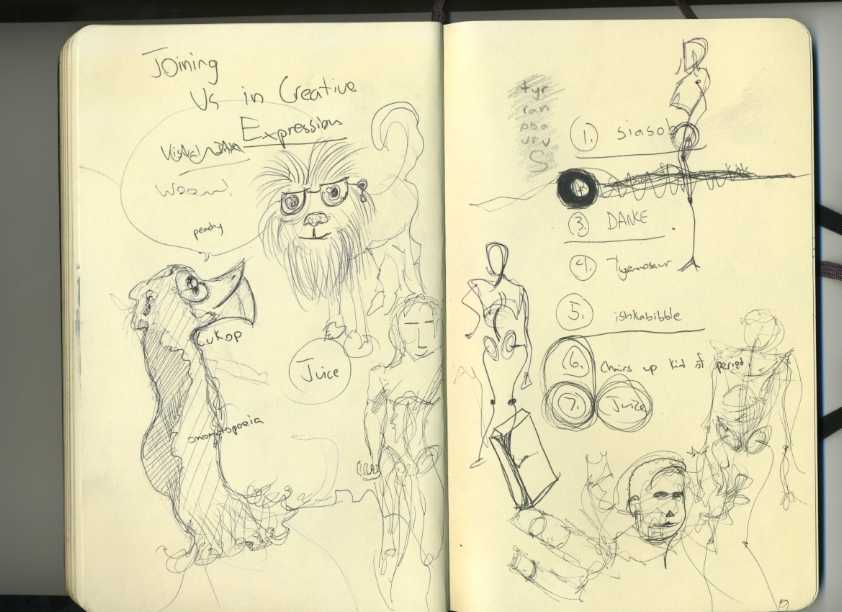 Joining
Us in Creative
Expression
Woow!
peachy
Cukop
Juice
onomatopoeia
tyr
ran
oso
uru
S
1. siasob
3. DANKE
4. Tyrenosaur
5. ishkabibble
6. Chairs up kid at period.
7. Juice